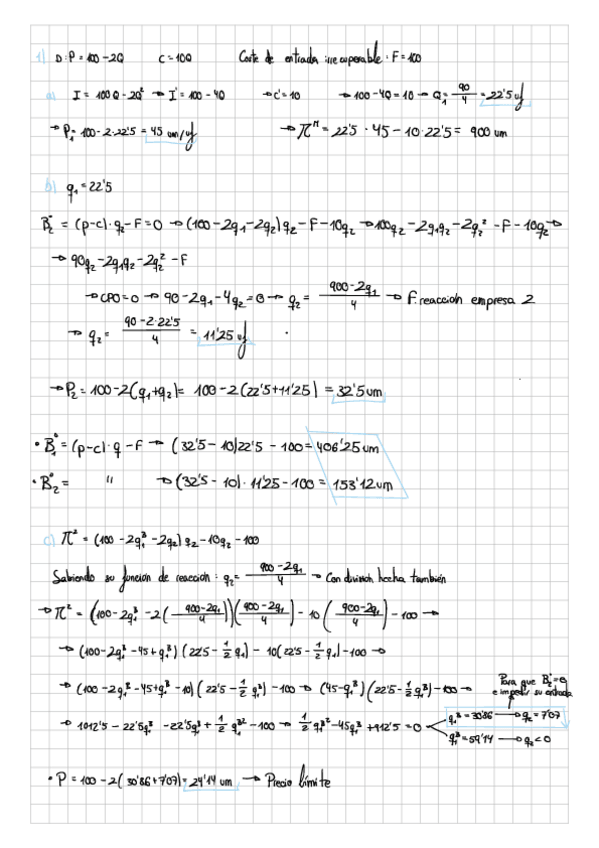 1) D: P = 100 - 2Q C = 10Q Coste de entrada irrecuperable: F = 100
a) I = 100Q - 2Q² → I' = 100 - 4Q → C' = 10 → 100 - 4Q = 10 → Q₁ = 90/4 = 22'5 uf
→ P₁ = 100 - 2·22'5 = 45 um/uf → πᴹ = 22'5 · 45 - 10·22'5 = 900 um
b) q₁ = 22'5
B₂° = (p-c)·q₂ - F = 0 → (100 - 2q₁ - 2q₂)q₂ - F - 10q₂ → 100q₂ - 2q₁q₂ - 2q₂² - F - 10q₂ →
→ 90q₂ - 2q₁q₂ - 2q₂² - F
→ CPO = 0 → 90 - 2q₁ - 4q₂ = 0 → q₂ = (900 - 2q₁)/4 → F. reacción empresa 2
→ q₂ = (90 - 2·22'5)/4 = 11'25 uf
→ P₂ = 100 - 2(q₁+q₂) = 100 - 2(22'5+11'25) = 32'5 um
• B₁° = (p-c)·q - F → (32'5 - 10)22'5 - 100 = 406'25 um
• B₂° = " → (32'5 - 10)·11'25 - 100 = 153'12 um
c) π² = (100 - 2q₁³ - 2q₂) q₂ - 10q₂ - 100
Sabiendo su función de reacción: q₂ = (900 - 2q₁)/4 → Con división hecha también
→ π² = (100 - 2q₁³ - 2((900-2q₁)/4))((900-2q₁)/4) - 10((900-2q₁)/4) - 100 →
→ (100 - 2q₁³ - 45 + q₁³)(22'5 - 1/2 q₁) - 10(22'5 - 1/2 q₁) - 100 →
Para que B₂° = 0
e impedir su entrada
→ (100 - 2q₁³ - 45 + q₁³ - 10)(22'5 - 1/2 q₁³) - 100 → (45 - q₁³)(22'5 - 1/2 q₁³) - 100 →
→ 1012'5 - 22'5q₁³ - 22'5q₁³ + 1/2 q₁³² - 100 → 1/2 q₁³² - 45q₁³ + 912'5 = 0
q₁³ = 30'86 → q₂ = 7'07
q₁³ = 59'14 → q₂ < 0
• P = 100 - 2(30'86 + 7'07) = 24'14 um → Precio límite